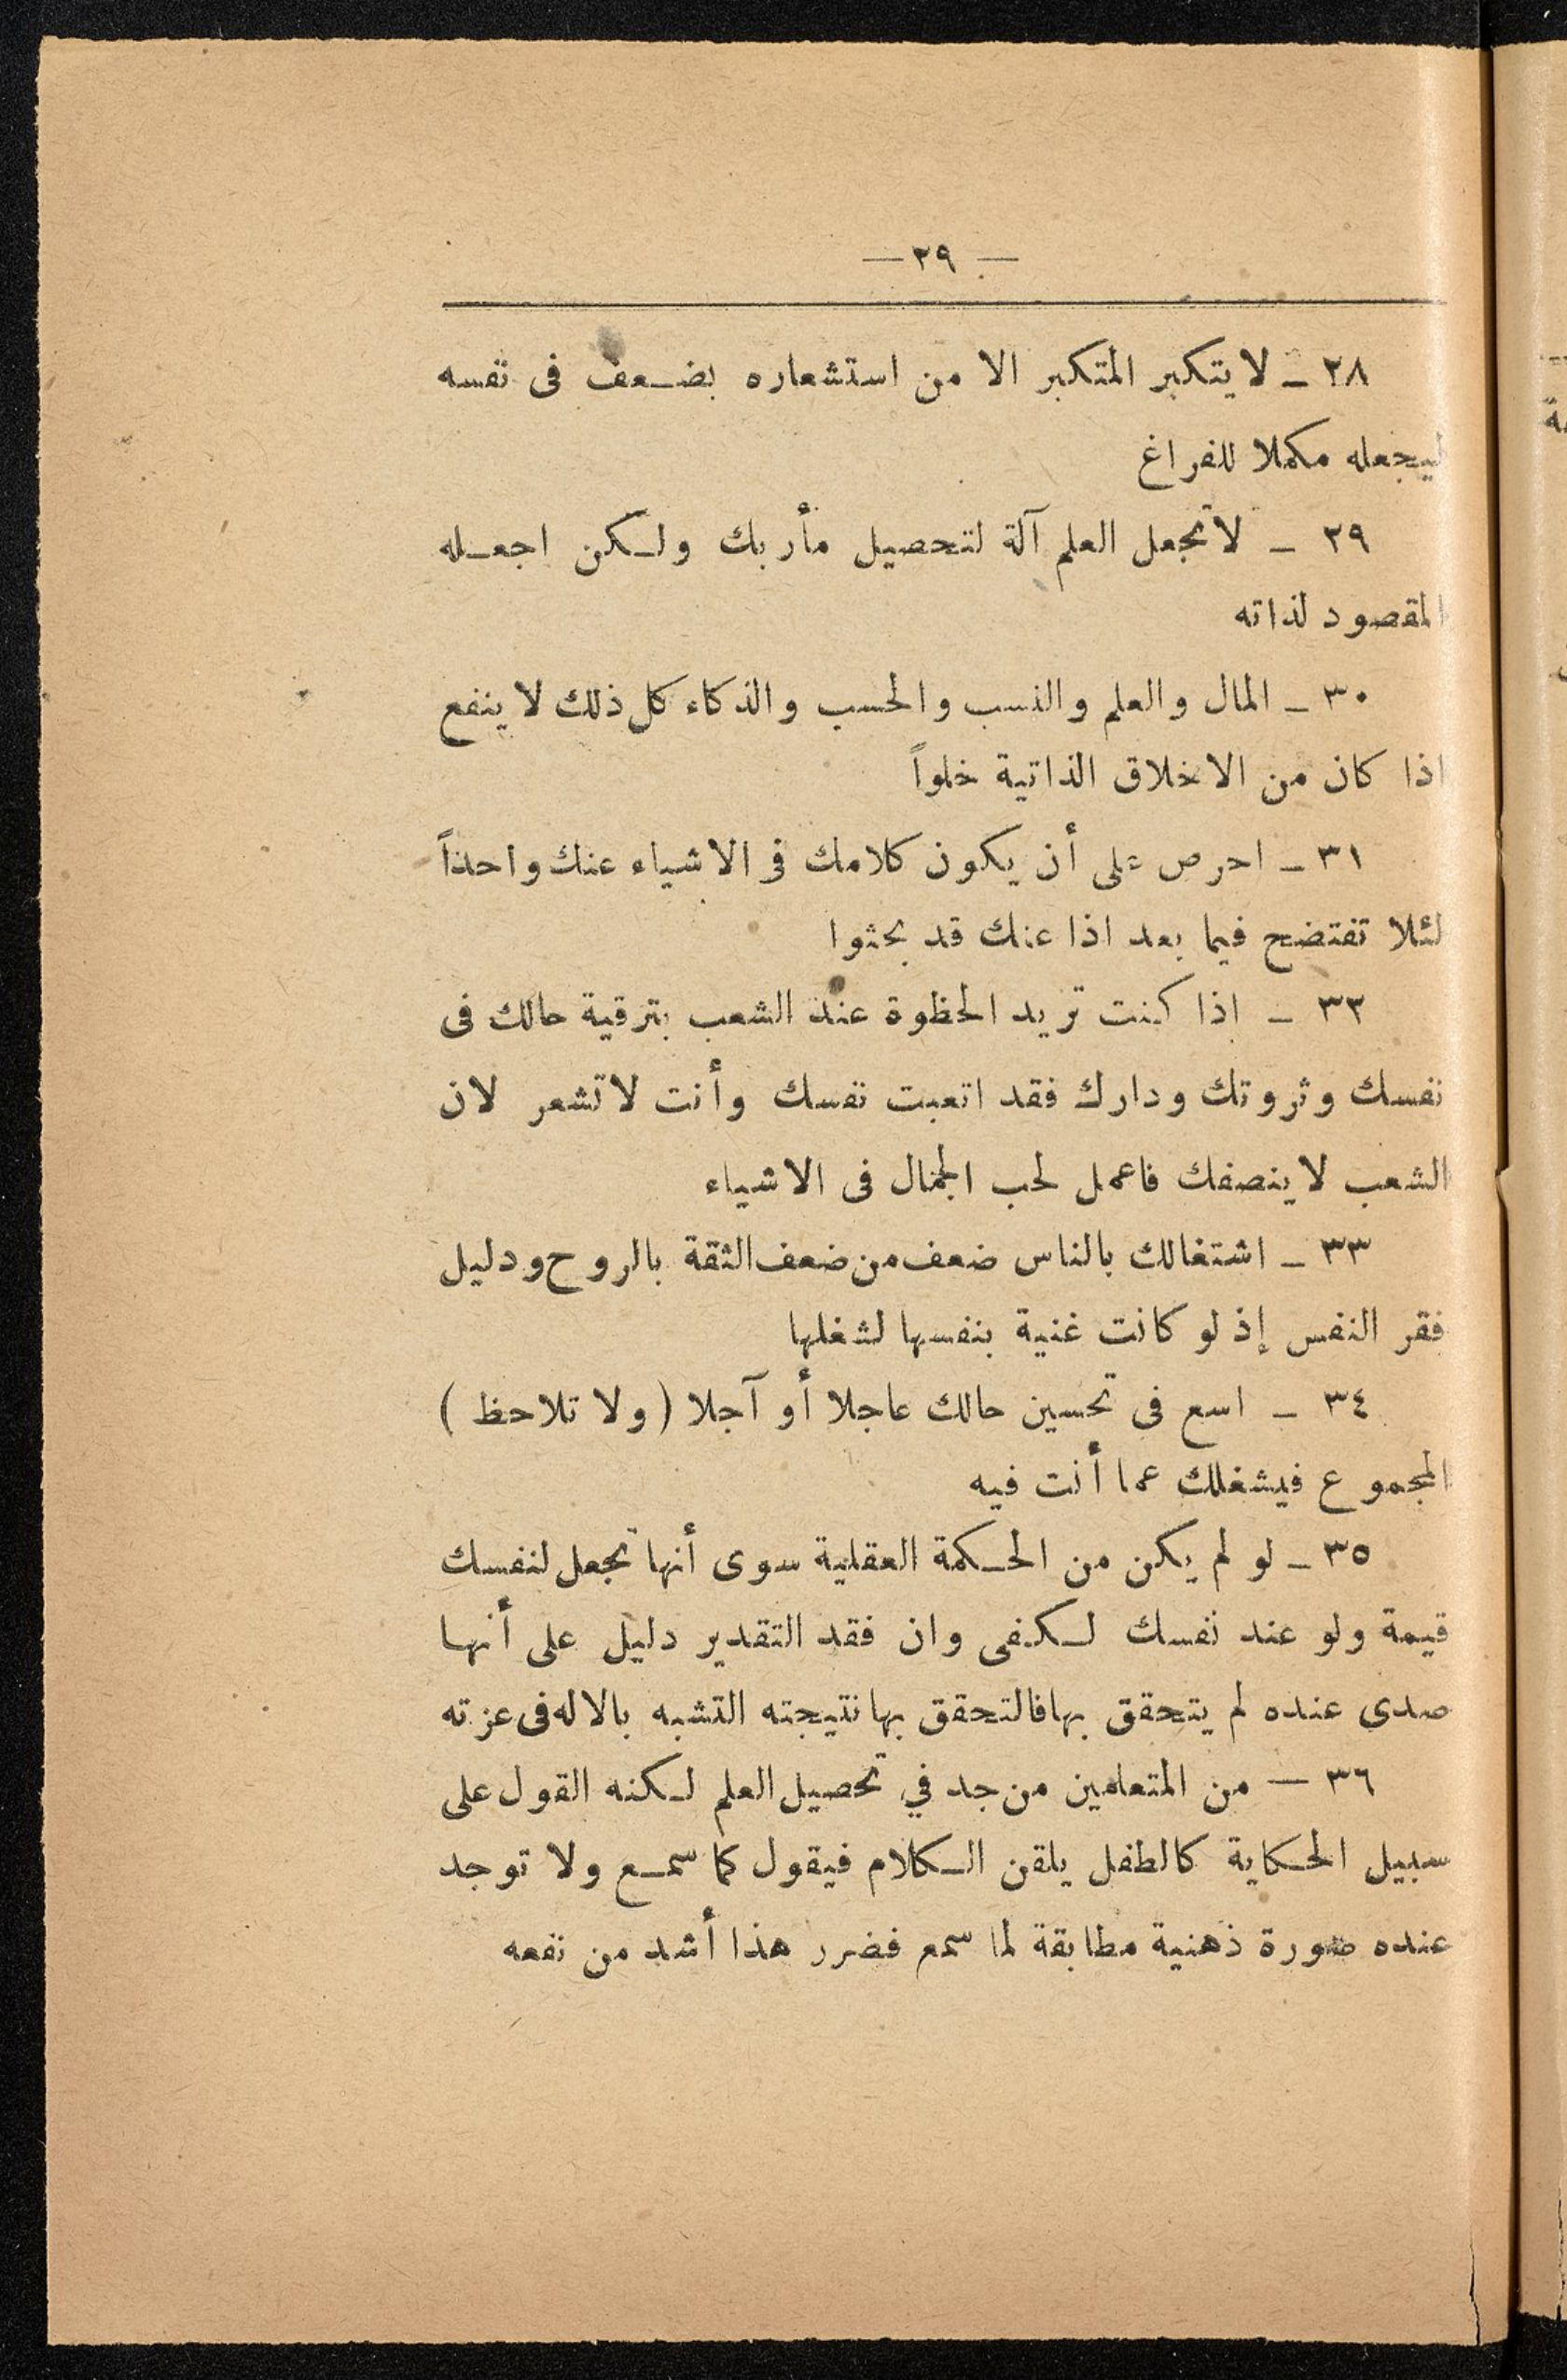 — ٢٩ —
٢٨ ـ لا يتكبر المتكبر الا من استشعاره بضعف فى نفسه
ليجعله مكملا للفراغ
٢٩ ـ لا تجعل العلم آلة لتحصيل مأربك ولكن اجعله
المقصود لذاته
٣٠ ـ المال والعلم والنسب والحسب والذكاء كل ذلك لا ينفع
اذا كان من الاخلاق الذاتية خلواً
٣١ ـ احرص على أن يكون كلامك فى الاشياء عنك واحداً
لئلا تفتضح فيما بعد اذا عنك قد بحثوا
٣٢ ـ اذا كنت تريد الحظوة عند الشعب بترقية حالك فى
نفسك وثروتك ودارك فقد اتعبت نفسك وأنت لا تشعر لان
الشعب لا ينصفك فاعمل لحب الجمال فى الاشياء
٣٣ ـ اشتغالك بالناس ضعف من ضعف الثقة بالروح ودليل
فقر النفس إذ لو كانت غنية بنفسها لشغلها
٣٤ ـ اسع فى تحسين حالك عاجلا أو آجلا ( ولا تلاحظ )
المجموع فيشغلك عما أنت فيه
٣٥ ـ لو لم يكن من الحكمة العقلية سوى أنها تجعل لنفسك
قيمة ولو عند نفسك لكفى وان فقد التقدير دليل على أنها
صدى عنده لم يتحقق بها فالتحقق بها نتيجته التشبه بالاله فى عزته
٣٦ — من المتعلمين من جد في تحصيل العلم لكنه القول على
سبيل الحكاية كالطفل يلقن الكلام فيقول كما سمع ولا توجد
عنده صورة ذهنية مطابقة لما سمع فضرر هذا أشد من نفعه